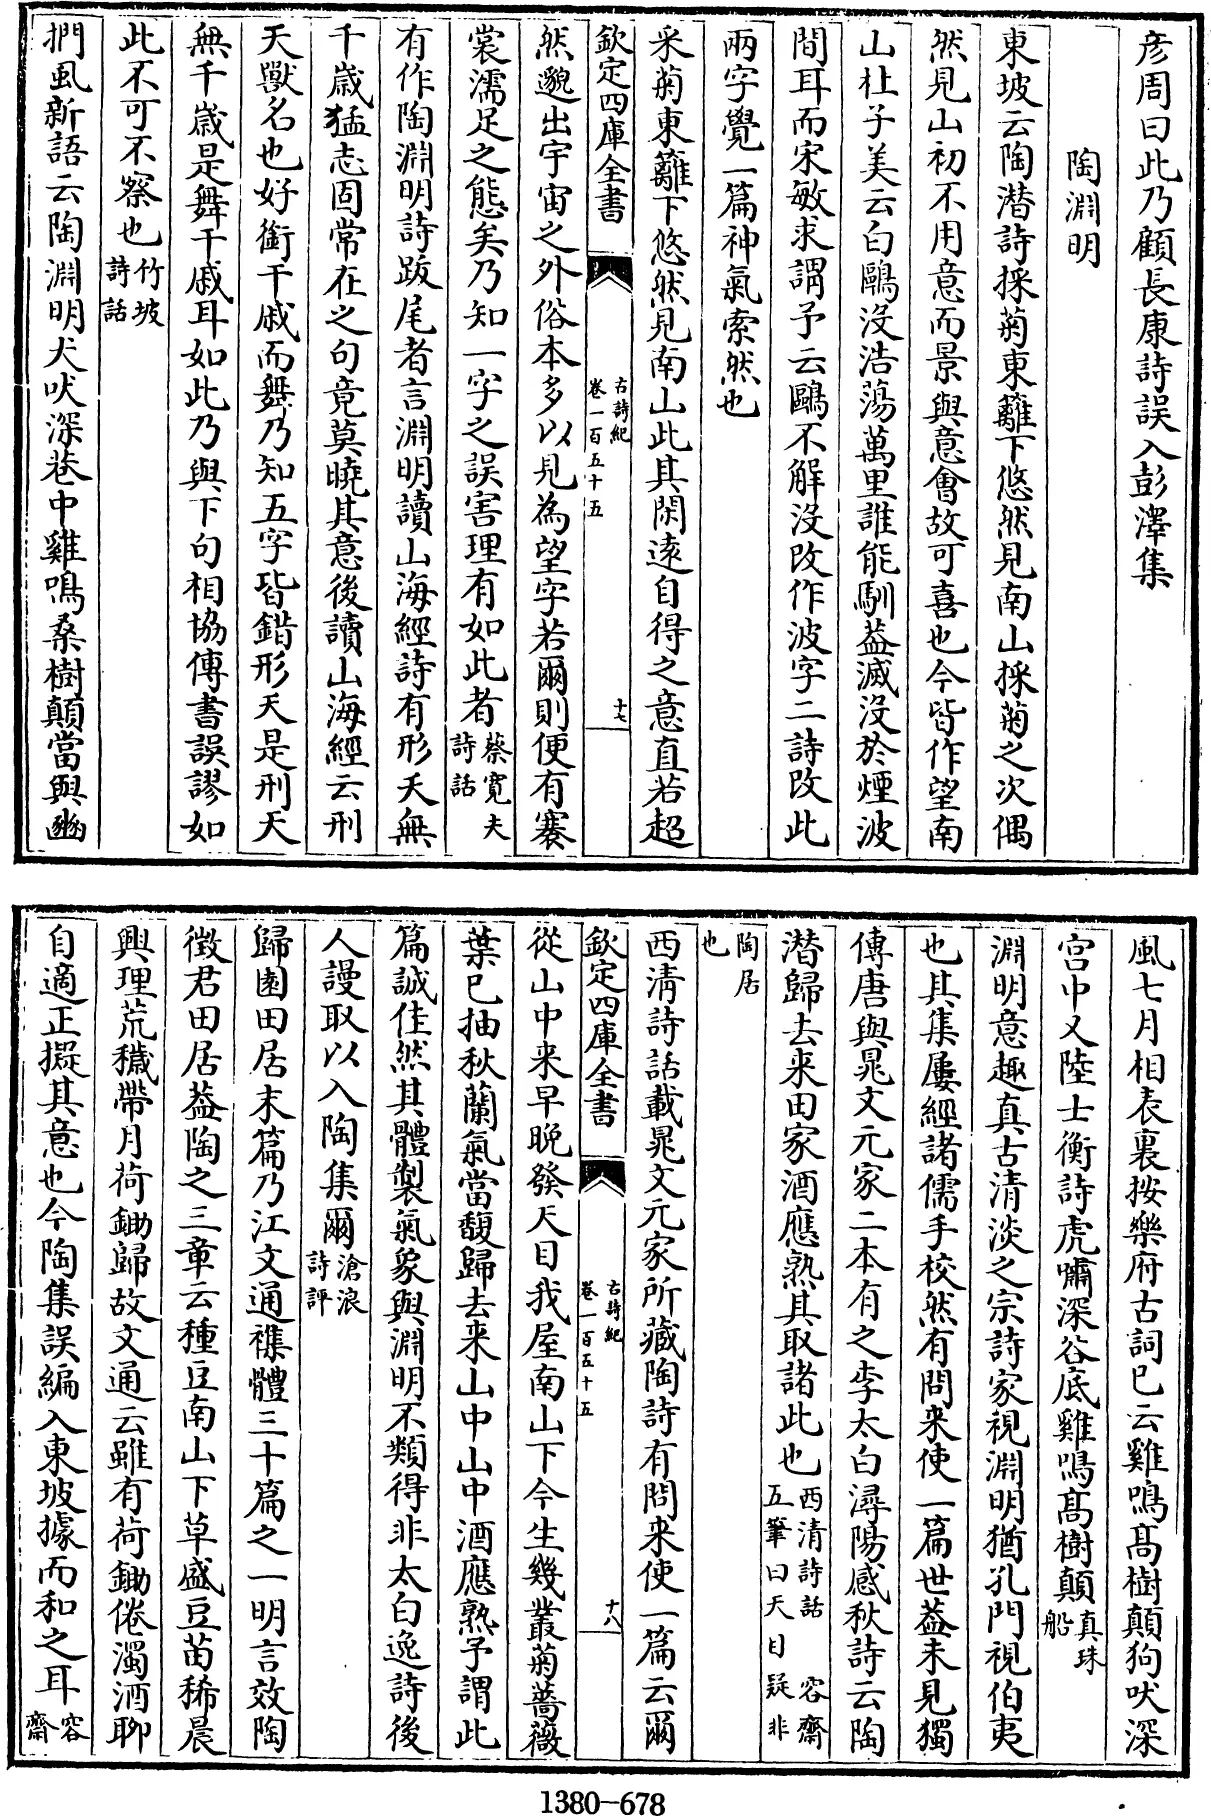 彦周曰此乃顧長康詩誤入彭澤集
陶淵明
東坡云陶潛詩採菊東籬下悠然見南山採菊之次偶
然見山初不用意而景與意會故可喜也今皆作望南
山杜子美云白鷗沒浩蕩萬里誰能馴葢滅沒於煙波
間耳而宋敏求謂予云鷗不解沒改作波字二詩改此
兩字覺一篇神氣索然也
采菊東籬下悠然見南山此其閑逺自得之意直若超
欽定四庫全書
古詩紀
卷一百五十五
十七
然邈出宇宙之外俗本多以見為望字若爾則便有褰
裳濡足之態矣乃知一字之誤害理有如此者蔡寛夫
詩話
有作陶淵明詩跋尾者言淵明讀山海經詩有形夭無
千歲猛志固常在之句竟莫曉其意後讀山海經云刑
天獸名也好銜干戚而舞乃知五字皆錯形夭是刑天
無千歲是舞干戚耳如此乃與下句相協傳書誤謬如
此不可不察也竹坡
詩話
捫風新語云陶淵明犬吠深巷中雞鳴桑樹顛當與豳
風七月相表裏按樂府古詞已云雞鳴髙樹顛狗吠深
宫中又陸士衡詩虎嘯深谷底雞鳴髙樹顛真珠
船
淵明意趣真古清淡之宗詩家視淵明猶孔門視伯夷
也其集屢經諸儒手校然有問来使一篇世葢未見獨
傳唐與晁文元家二本有之李太白潯陽感秋詩云陶
潛歸去来田家酒應熟其取諸此也西清詩話 容齋
五筆曰天目疑非
陶居
也
西清詩話載晁文元家所藏陶詩有問来使一篇云爾
欽定四庫全書
古詩紀
卷一百五十五
十八
從山中来早晚發天目我屋南山下今生幾叢菊薔薇
葉已抽秋蘭氣當馥歸去来山中山中酒應熟予謂此
篇誠佳然其體製氣象與淵明不類得非太白逸詩後
人謾取以入陶集爾滄浪
詩評
歸園田居末篇乃江文通襍體三十篇之一明言效陶
徵君田居葢陶之三章云種豆南山下草盛豆苗稀晨
興理荒穢帶月荷鋤歸故文通云雖有荷鋤倦濁酒聊
自適正擬其意也今陶集誤編入東坡據而和之耳容
齋
1380-678